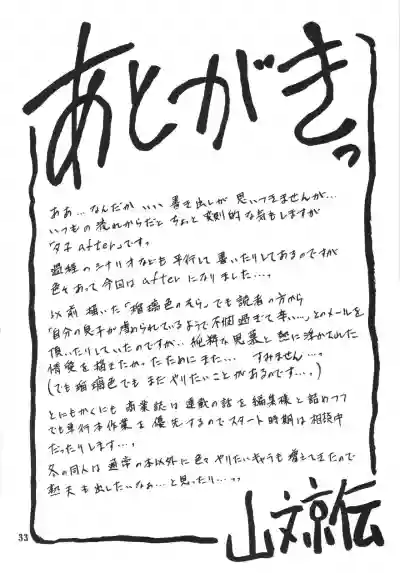 あとがきっ
ああ…なんだか いい 書き出しが 思いつきませんが…
いつもの 流れからだと ちょっと 変則的な気もしますが
after」です。
過程の シナリオなども 平行して 書いたりしてあるのですが
色々あって 今回は after に なりました…。
以前 描いた「瑠璃色のそら」でも 読者の方から
「自分の息子が虐められているようで不憫過ぎて辛い…」とのメールを
頂いたりしていたのですが… 純粋な思慕と 熱に浮かされた
情愛を 描きたかったために また… すみません…。
(でも 瑠璃色でも まだ やりたいことが あるのです…。)
とにもかくにも 商業誌は 連載の話を 編集様と 詰めつつ
でも単行本作業を 優先するので スタート時期は 相談中
だったりします…。
冬の同人は 通常の本以外に 色々 やりたいキャラも 増えてきたので
も出したいなぁ…と思ったり…っ
33
山文京伝